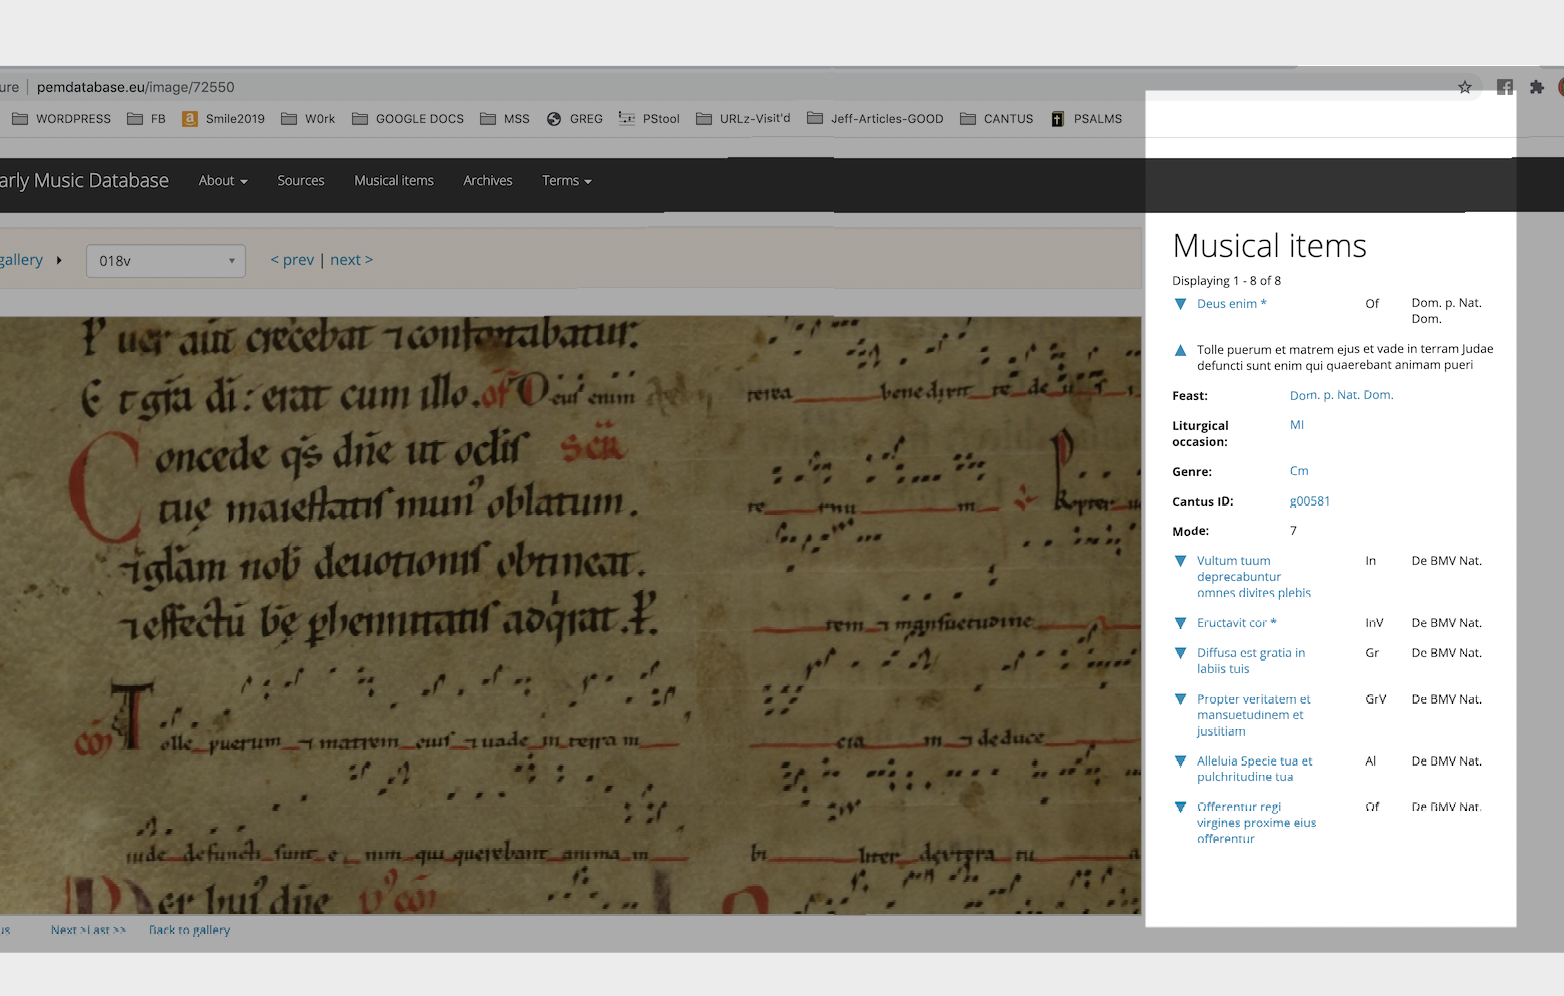 ure | pemdatabase.eu/image/72550
WORDPRESS FB Smile2019 W0rk GOOGLE DOCS MSS GREG PStool URLz-Visit'd Jeff-Articles-GOOD CANTUS PSALMS
arly Music Database About Sources Musical items Archives Terms
gallery 018v < prev | next >
P uer aut crecebat ⁊ confortabatur.
E t gr̄a di: erat cum illo. of Deus enim
C oncede qs dn̄e ut oclis scā
tue maiestatis mun' oblatum.
⁊ glām nob deuotionis obtineat.
⁊ effectū bē phennitatis adqrat. P.
cō T olle puerum ⁊ matrem eius ⁊ uade in terra m
iude defuncti sunt e nim qui querebant anima m
er hui' dn̄e
terra benedixit te de u s
re tnu m Propter
tem ⁊ mansuetudine
cia m ⁊ deduce
bi liter dextera tu a
Musical items
Displaying 1 - 8 of 8
Deus enim * Of Dom. p. Nat.
Dom.
Tolle puerum et matrem ejus et vade in terram Judae
defuncti sunt enim qui quaerebant animam pueri
Feast: Dom. p. Nat. Dom.
Liturgical MI
occasion:
Genre: Cm
Cantus ID: g00581
Mode: 7
Vultum tuum In De BMV Nat.
deprecabuntur
omnes divites plebis
Eructavit cor * InV De BMV Nat.
Diffusa est gratia in Gr De BMV Nat.
labiis tuis
Propter veritatem et GrV De BMV Nat.
mansuetudinem et
justitiam
Alleluia Specie tua et Al De BMV Nat.
pulchritudine tua
Offerentur regi Of De BMV Nat.
virgines proxime eius
offerentur
us Next > Last >> Back to gallery